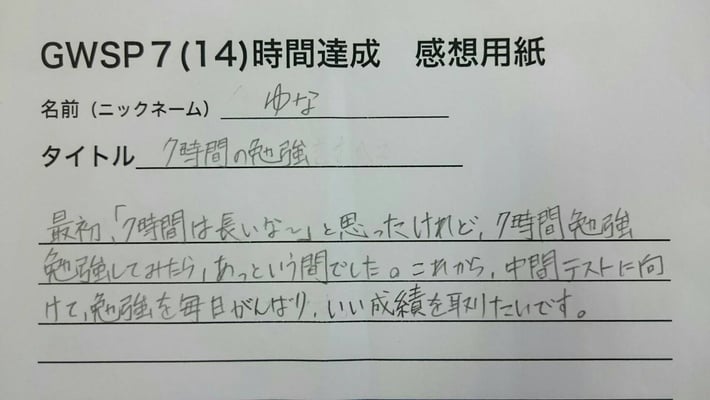 GWSP7(14)時間達成 感想用紙
名前(ニックネーム) ゆな
タイトル 7時間の勉強
最初、「7時間は長いな~」と思ったけれど、7時間勉強
勉強してみたら、あっという間でした。これから、中間テストに向
けて、勉強を毎日がんばり、いい成績を取りたいです。